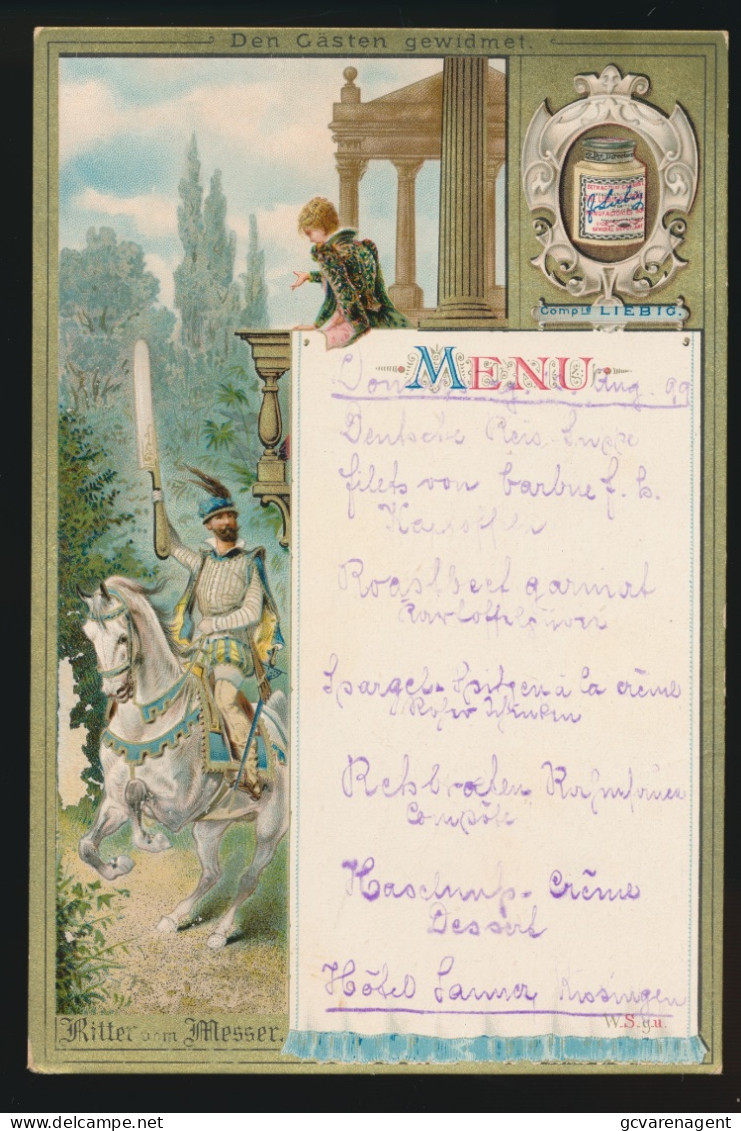 Den Gästen gewidmet.
Liebig
Compie LIEBIG.
MENU
Aug. 99
Deutsche Reis Suppe
filets von barbue f. h.
Kartoffeln
Roastbeef garnirt
Spargel-Spitzen à la crême
Roher Schinken
Rehbraten Rahmsauce
Compôte
Haselnuß-Crême
Dessert
Hôtel Sanner, Kissingen
Ritter vom Messer.
W.S.g.u.
gcvarenagent